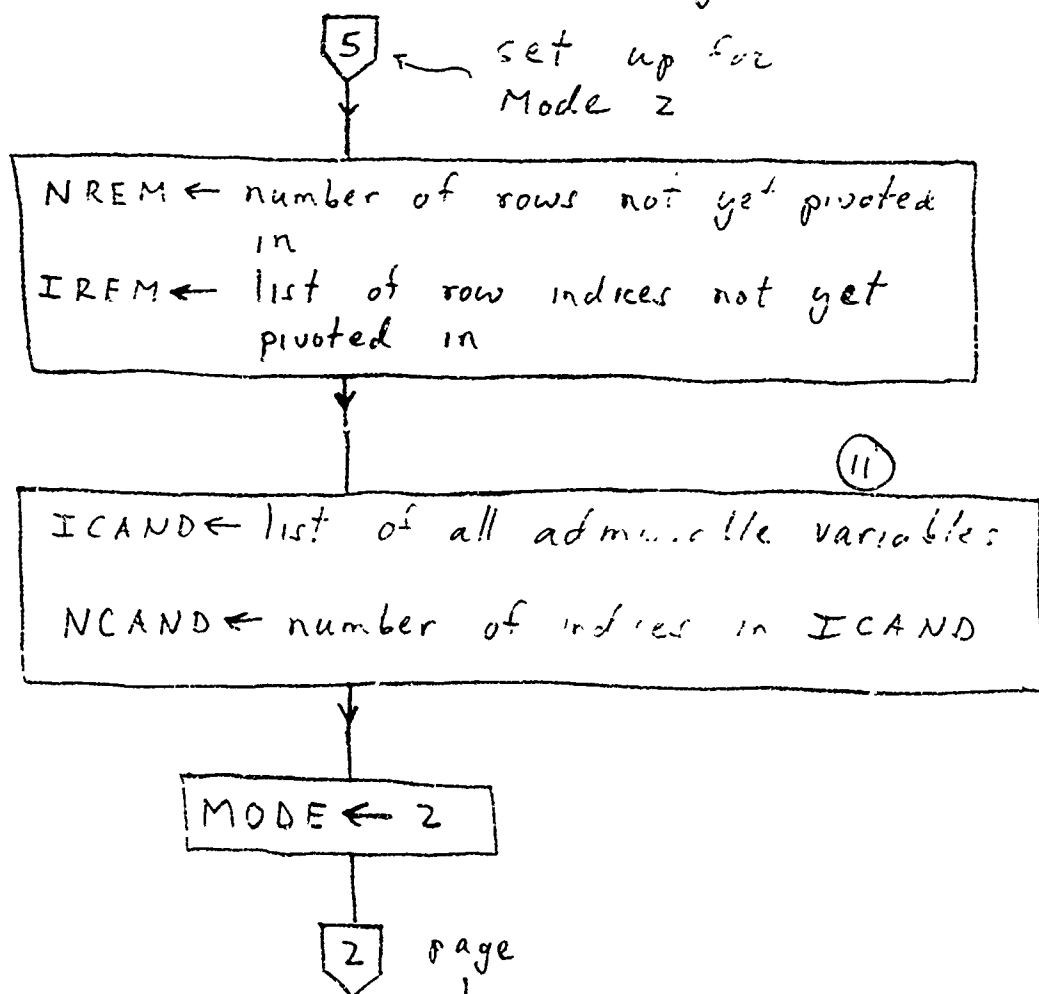 5
set up for
Mode 2
NREM ← number of rows not yet pivoted
in
IREM ← list of row indices not yet
pivoted in
11
ICAND ← list of all variables
NCAND ← number of indices in ICAND
MODE ← 2
2 page
1